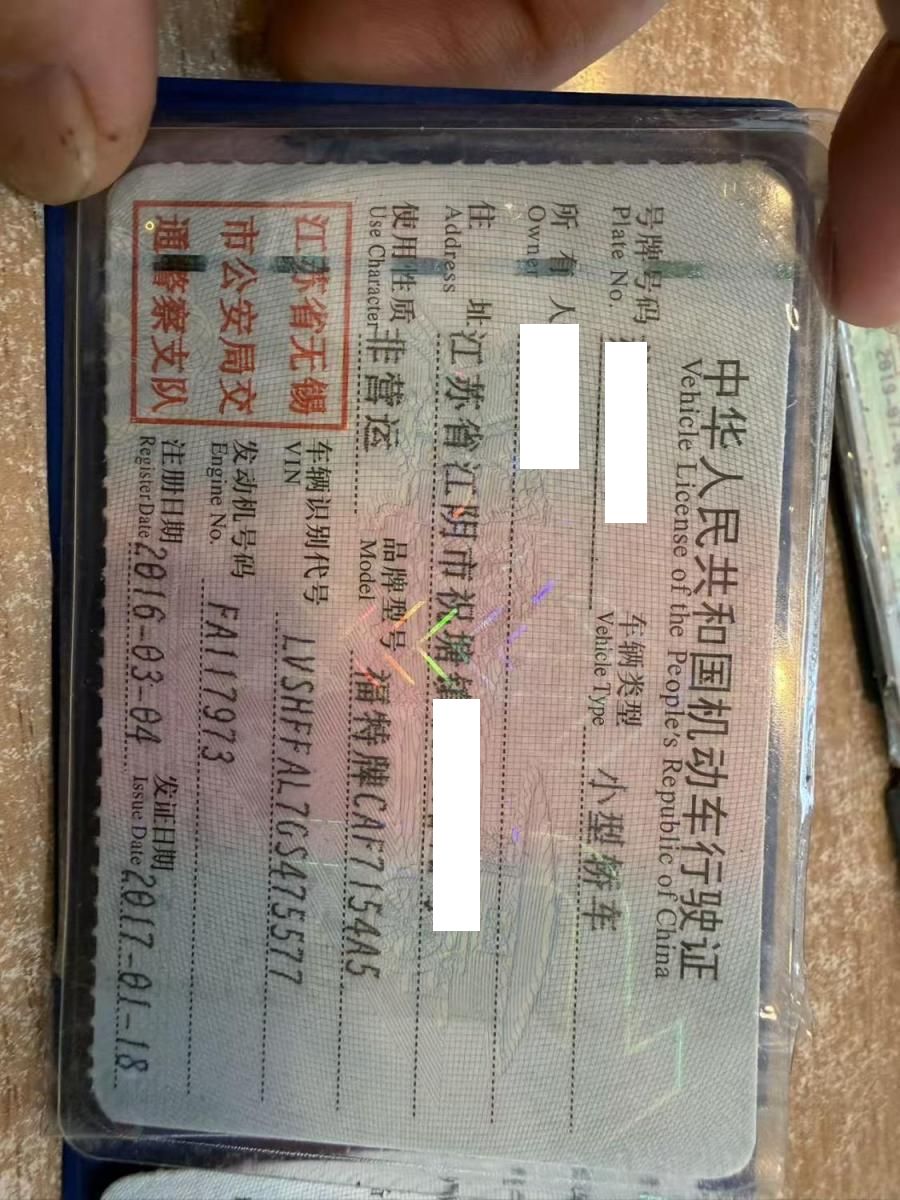 中华人民共和国机动车行驶证
Vehicle License of the People's Republic of China
号牌号码
Plate No.
车辆类型 小型轿车
Vehicle Type
所有人
Owner
住址 江苏省江阴市祝塘镇
Address
使用性质 非营运
Use Character
品牌型号 福特牌CAF7154A5
Model
江苏省无锡
市公安局交
通警察支队
车辆识别代号 LVSHFFAL7GS475577
VIN
发动机号码 FA117973
Engine No.
注册日期 2016-03-04
Register Date
发证日期 2017-01-18
Issue Date